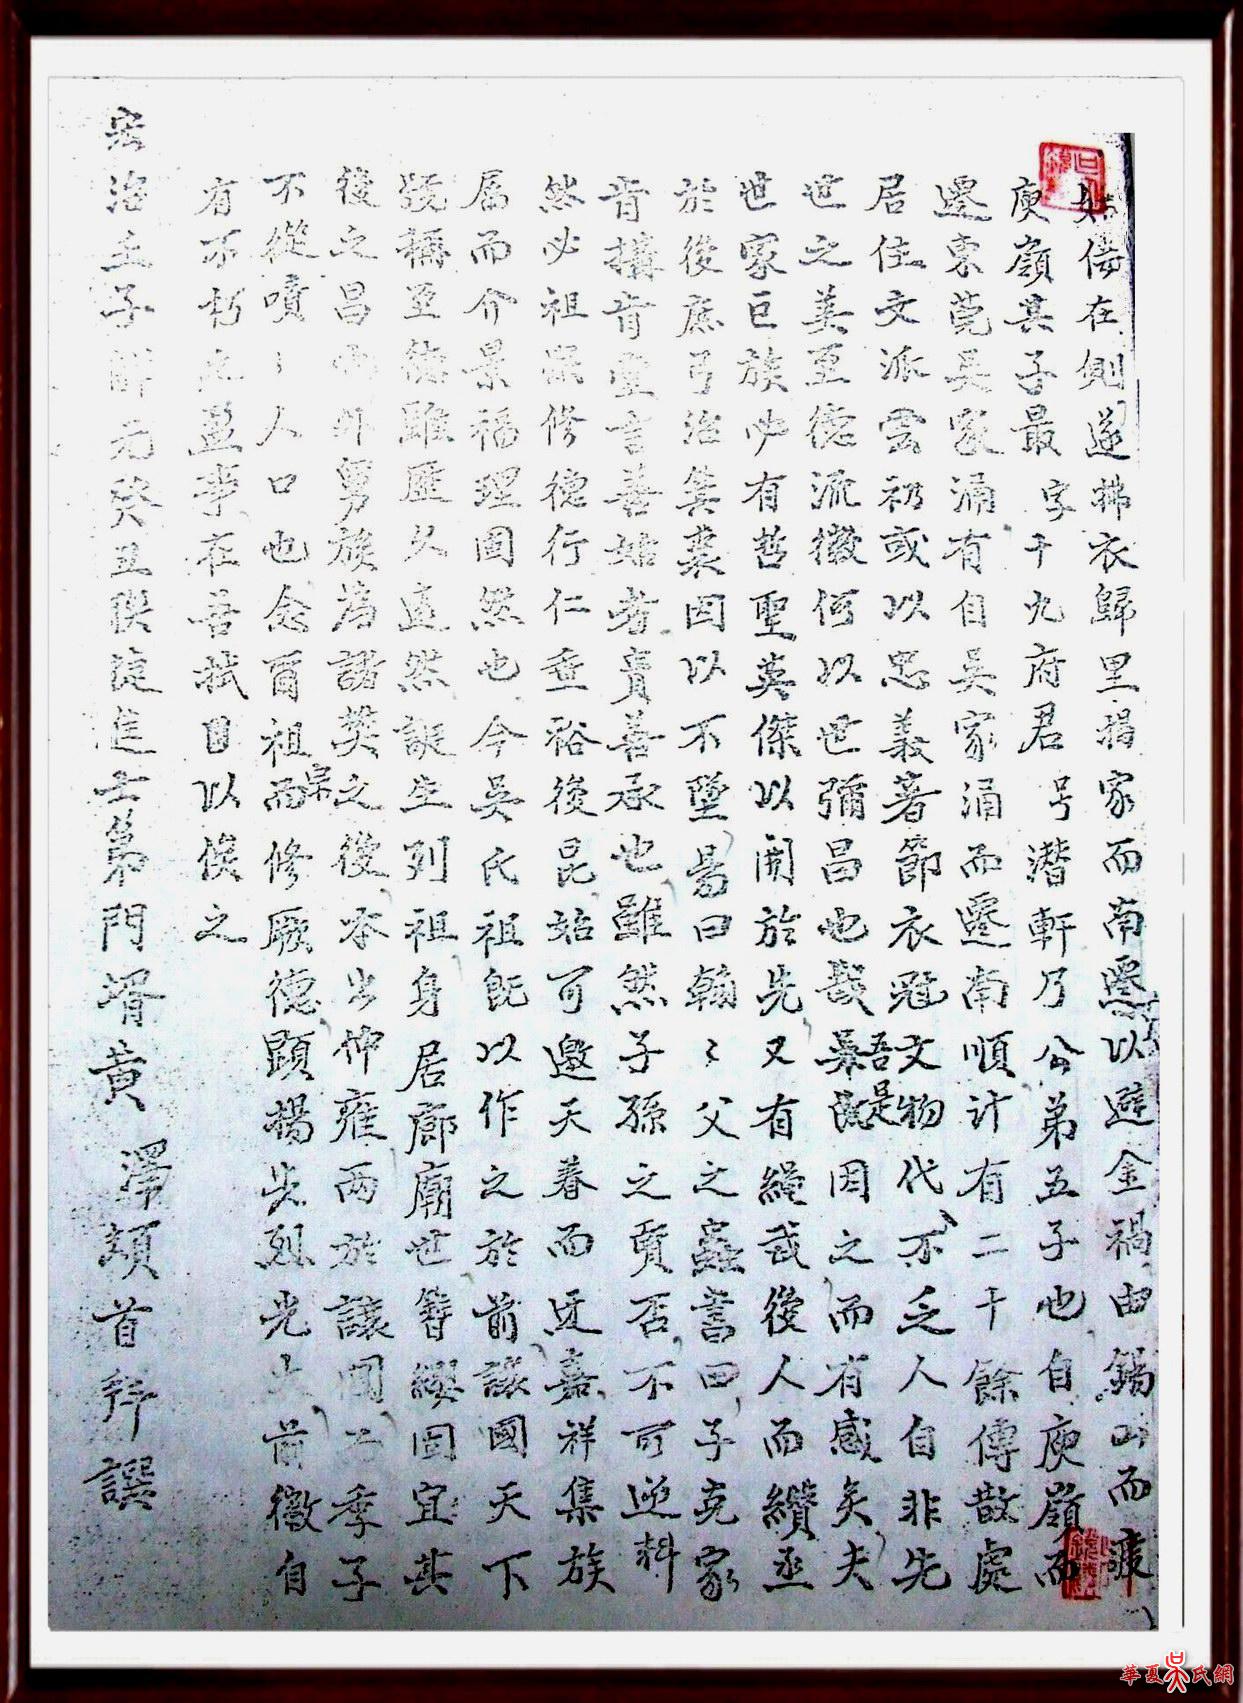 在側遂拂衣歸里揭家而南遷以避金禍由錫山而
庾嶺其子最字千九府君号潛軒乃公弟五子也自庾嶺而
遷東莞吳家涌有自吳家涌而遷南順计有二十餘傳散處
居住文派雲礽或以忠義著節衣冠文物代不乏人自非先
世之美至德流徽何以世彌昌也哉吾是因之而有感矣夫
世家巨族必有哲聖英傑以開於先又有繩武後人而纘丞
於後庶弓治箕裘因以不墜易曰幹〻父之蠱書曰子克家
肯搆肯堂言善始者貴善承也雖然子孫之賢否不可逆料
然必祖宗修德行仁垂裕後昆始可邀天眷而迓嘉祥集族
属而介景福理固然也今吳氏祖既以作之於前讓國天下
既稱至德雖歷久遠然誕生列祖身居廊廟世簪纓固宜其
後之昌也外舅族為諸樊之後宗本出仲雍两於讓國而季子
不從嘖〻人口也念爾祖而修厥德顕揚先烈光大前徽自
有不朽之盛事在吾拭目以俟之
治壬子解元癸丑联捷進士第門壻黄澤頓首拜譔
華夏吳氏網